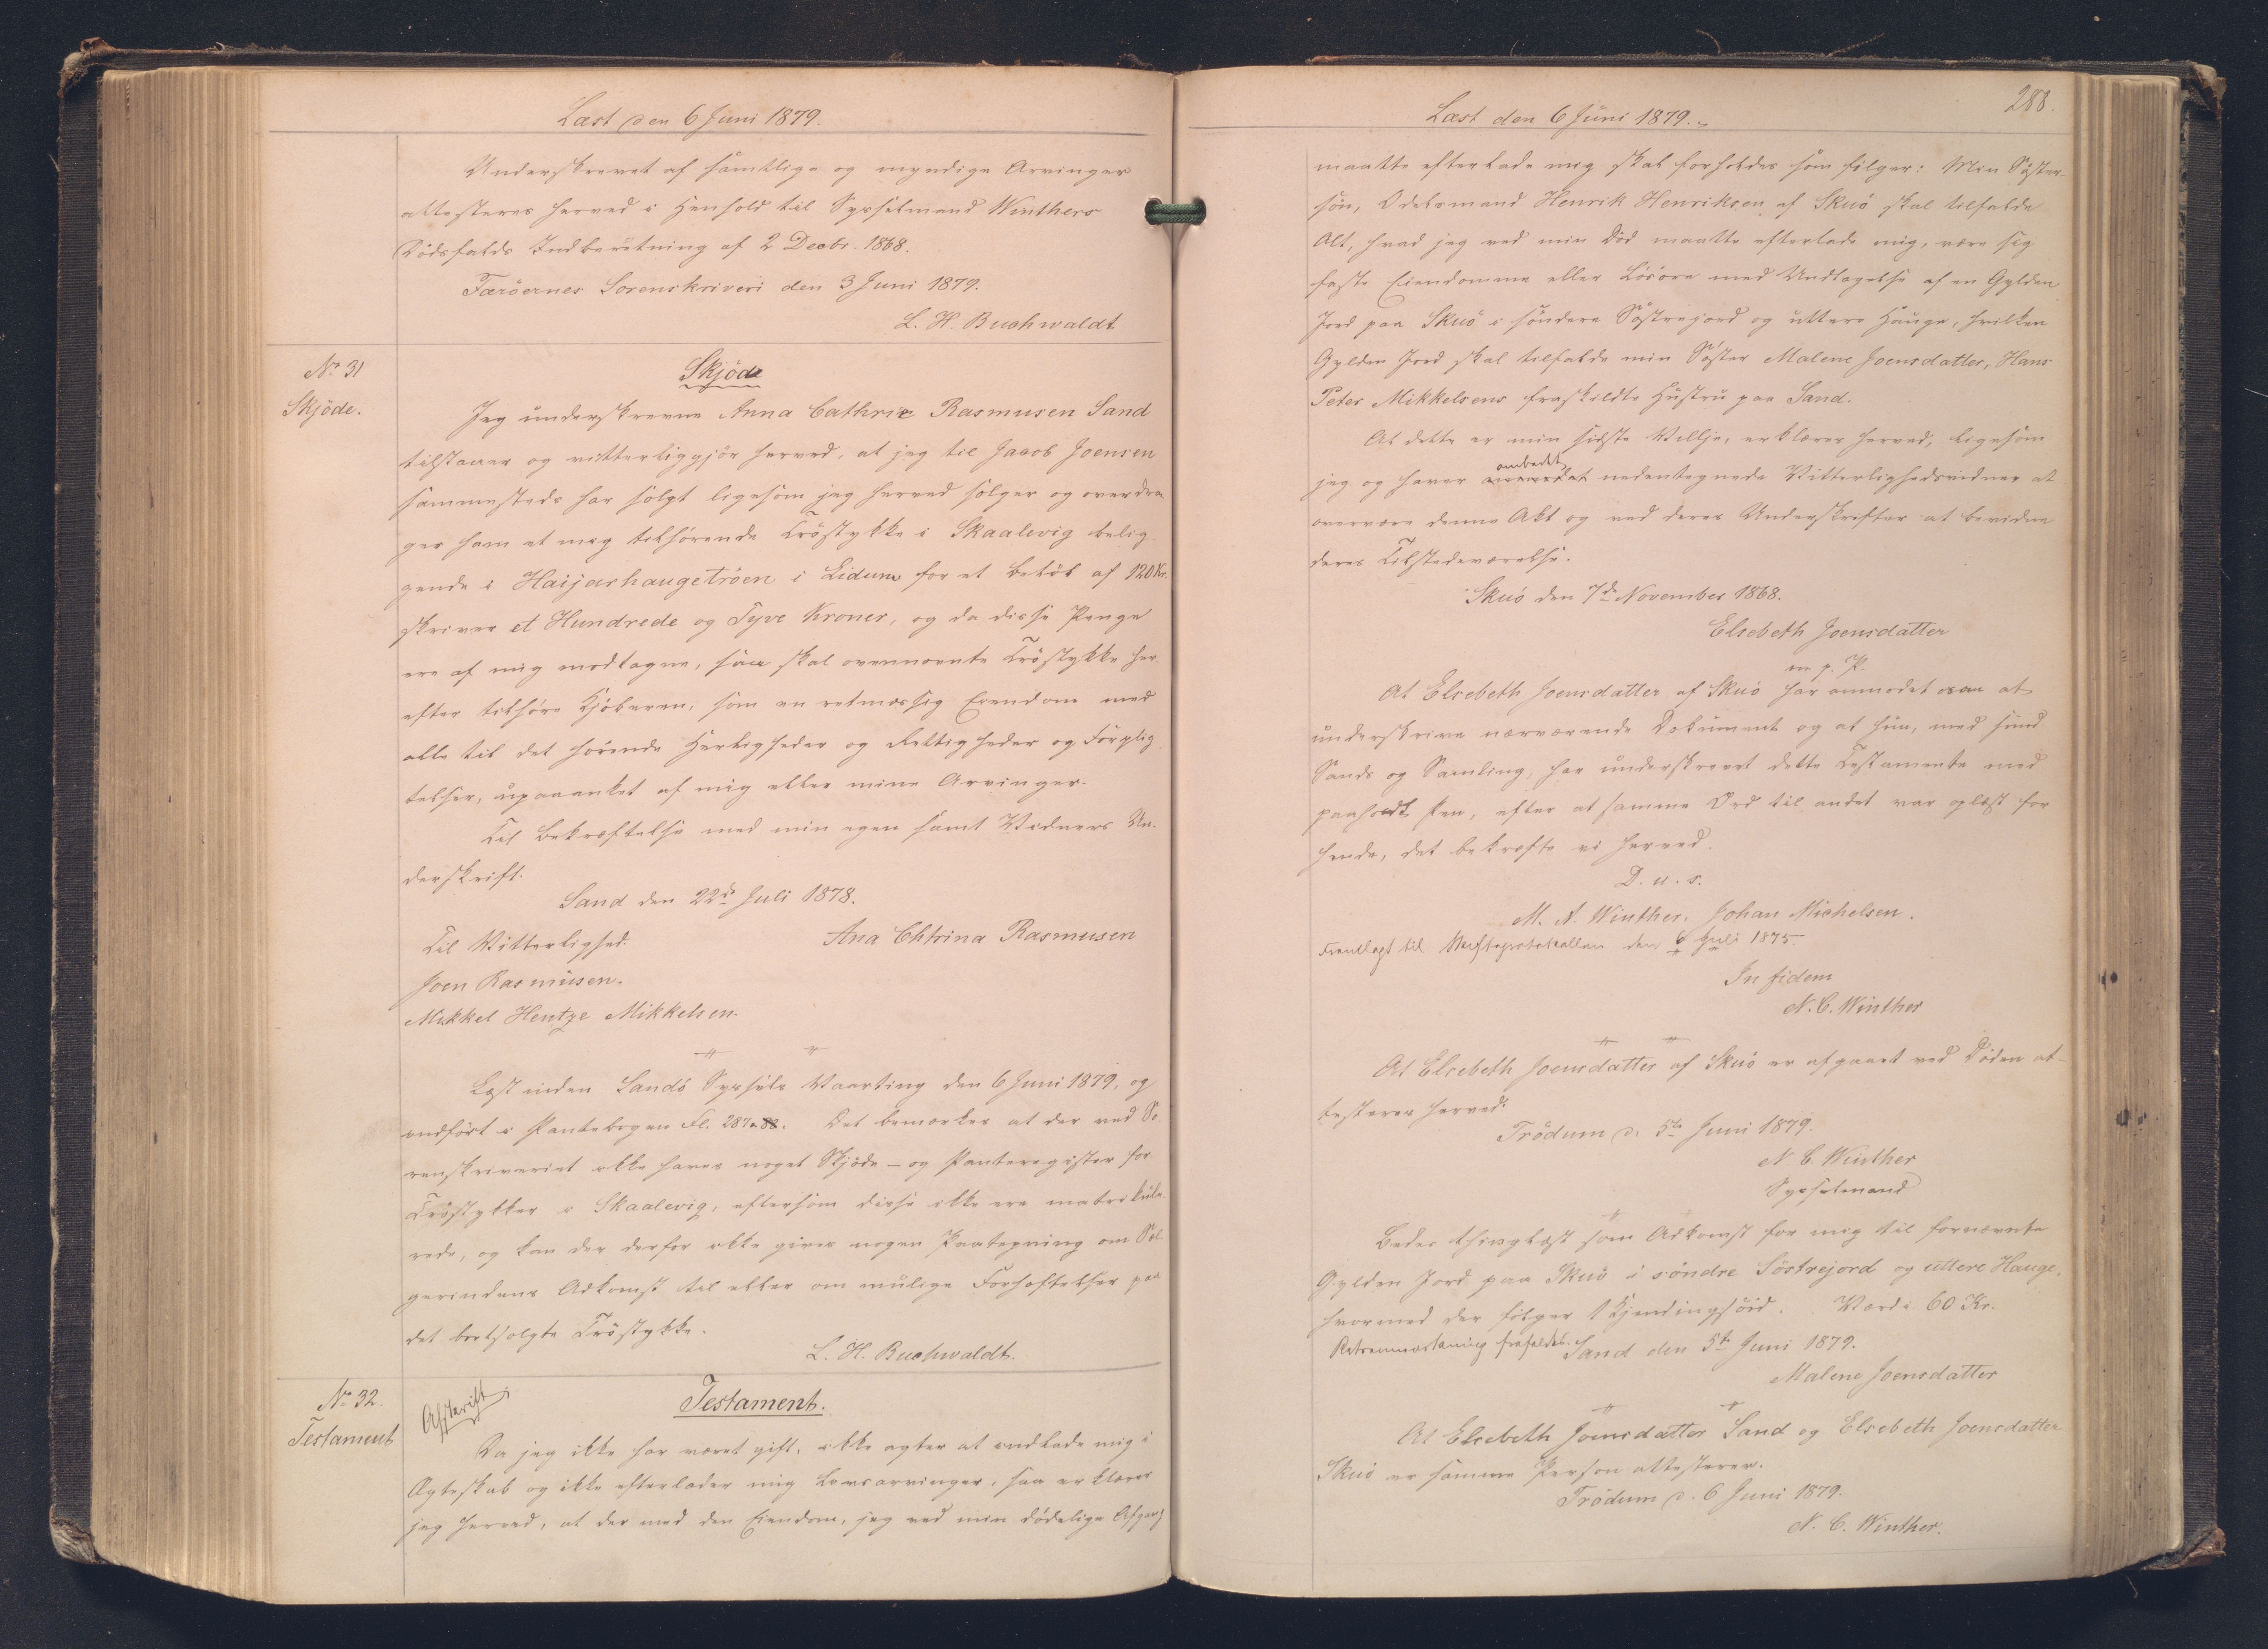 Læst den 6 Juni 1879.
Underskrevet af samtlige og myndige Arvinger
attesteres herved i Henhold til Sysselmand Winthers
Dödsfalds Indberetning af 2 Decbr. 1868.
Færöernes Sorenskriveri den 3 Juni 1879.
L. H. Buchwaldt
No 31
Skjöde.
Skjöde
Jeg underskrevne Anna Cathrie Rasmusen Sand
tilstaaer og vitterliggjör herved, at jeg til Jacob Joensen
sammesteds har solgt ligesom jeg herved sælger og overdra
ger ham et mig tilhörende Tröstykke i Skaalevig belig-
gende i Haijarhaugetröen i Lidum for et Belöb af 120 Kr.
skriver et Hundrede og Tyve Kroner, og da disse Penge
ere af mig modtagne, saa skal ovennævnte Tröstykke her-
efter tilhöre Kjöberen, som en retmæssig Eiendom med
alle til det hörende Herligheder og Rettigheder og Forplig-
telser, upaaanket af mig eller mine Arvinger.
Til Bekræftelse med min egen samt Vidners Un-
derskrift.
Sand den 22de Juli 1878.
Til Vitterlighed:
Ana Chtrina Rasmusen
Joen Rasmusen.
Mikkel Hentze Mikkelsen.
Læst inden Sandö Syssels Vaarting den 6 Juni 1879, og
indfört i Pantebogen Fl. 287 88. Det bemærkes at der ved So
renskriveriet ikke haves noget Skjöde- og Panteregister for
Tröstykker i Skaalevig, eftersom disse ikke ere matrikule-
rede, og kan der derfor ikke gives nogen Paategning om Sæl
gerindens Adkomst til eller om mulige Forhæftelser paa
det bortsolgte Tröstykke.
L. H. Buchwaldt.
No 32.
Testament
Afskrift
Testament.
Da jeg ikke har været gift, ikke agter at indlade mig i
Ægteskab og ikke efterlader mig Livsarvinger, saa erklærer
jeg herved, at der med den Eiendom, jeg ved min dödelige Afgang
288.
Læst den 6 Juni 1879.
maatte efterlade mig skal forholdes som fölger: Min Söster-
sön, Odelsmand Henrik Henriksen af Skuö skal tilfalde
Alt, hvad jeg ved min Död maatte efterlade mig, være sig
faste Eiendomme eller Lösöre med Undtagelse af en Gylden
Jord paa Skuö i söndere Söstrejord og uttere Hauge, hvilken
Gylden Jord skal tilfalde min Söster Malene Joensdatter, Hans
Peter Mikkelsens fraskildte Hustru paa Sand.
At dette er min sidste Villje, erklærer herved, ligesom
jeg og haver ombedt nedentegnede Vitterlighedsvidner at
overvære denne Akt og ved deres Underskrifter at bevidne
deres Tilstedeværelse.
Skuö den 7de November 1868.
Elsebeth Joensdatter
m. p. P.
At Elsebeth Joensdatter af Skuö har anmodet os om at
underskrive nærværende Dokument og at hun, med sund
Sands og Samling, har underskrevet dette Testamente med
paaholdt Pen, efter at samme Ord til andet var oplæst for
hende, det bekræfte vi herved.
D. u. s.
M. A. Winther. Johan Michelsen.
Fremlagt til Skifteprotokollen den 6 Juli 1875.
In fidem
N. C. Winther
At Elsebeth Joensdatter af Skuö er afgaaet ved Döden at-
testeres herved.
Trödum d. 5te Juni 1879.
N. C. Winther
Sysselmand
Bedes thinglæst som Adkomst for mig til fornævnte
Gylden Jord paa Skuö i söndre Söstrejord og uttere Hauge,
hvormed der fölger 1 Kjendingsöid. Værdi 60 Kr.
Retsanmærkning frafaldes. Sand den 5te Juni 1879.
Malene Joensdatter
At Elsebeth Joensdatter Sand og Elsebeth Joensdatter
Skuö er samme Person attesteres.
Trödum d. 6 Juni 1879.
N. C. Winther.